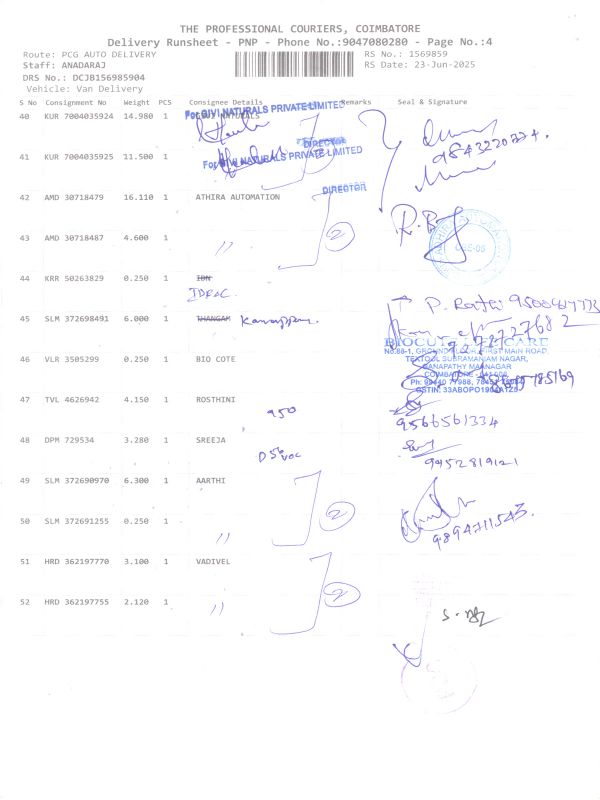 THE PROFESSIONAL COURIERS, COIMBATORE
Delivery Runsheet - PNP - Phone No.:9047080280 - Page No.:4
Route: PCG AUTO DELIVERY RS No.: 1569859
Staff: ANADARAJ RS Date: 23-Jun-2025
DRS No.: DCJB156985904
Vehicle: Van Delivery
S No Consignment No Weight PCS Consignee Details Remarks Seal & Signature
40 KUR 7004035924 14.980 1 NATURALS
For GIVI NATURALS PRIVATE LIMITED
DIRECTOR
9843220334.
41 KUR 7004035925 11.500 1
For GIVI NATURALS PRIVATE LIMITED
DIRECTOR
42 AMD 30718479 16.110 1 ATHIRA AUTOMATION
R.B
43 AMD 30718487 4.600 1 〃 2
CBE-06
44 KRR 50263829 0.250 1 IDN
P. Rathi
45 SLM 372698491 6.000 1 THANGAM
46 VLR 3505299 0.250 1 BIO COTE
GROUND FLOOR, FIRST MAIN ROAD,
TEXTOOL SUBRAMANIAM NAGAR,
GANAPATHY MAANAGAR
COIMBATORE
47 TVL 4626942 4.150 1 ROSTHINI
950
9566561334
48 DPM 729534 3.280 1 SREEJA
9952819121
49 SLM 372690970 6.300 1 AARTHI
50 SLM 372691255 0.250 1 〃 2
9894711543.
51 HRD 362197770 3.100 1 VADIVEL
52 HRD 362197755 2.120 1 〃 2